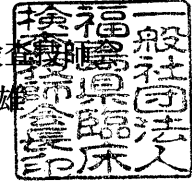 一般社団法人
福島県臨床
検査技師会長印
師
雄